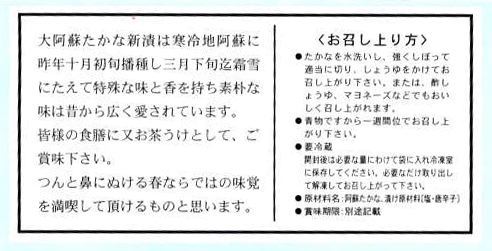 大阿蘇たかな新漬は寒冷地阿蘇に
昨年十月初旬播種し三月下旬迄霜雪
にたえて特殊な味と香を持ち素朴な
味は昔から広く愛されています。
皆様の食膳に又お茶うけとして、ご
賞味下さい。
つんと鼻にぬける春ならではの味覚
を満喫して頂けるものと思います。
〈お召し上り方〉
●たかなを水洗いし、強くしぼって
適当に切り、しょうゆをかけてお
召し上がり下さい。または、酢し
ょうゆ、マヨネーズなどでもおい
しく召し上がれます。
●青物ですから一週間位でお召し上
がり下さい。
●要冷蔵
開封後は必要な量にわけて袋に入れ冷凍室
に保存してください。必要なだけ取り出し
て解凍してお召し上がって下さい。
●原材料名:阿蘇たかな、漬け原材料[塩・唐辛子]
●賞味期限:別途記載